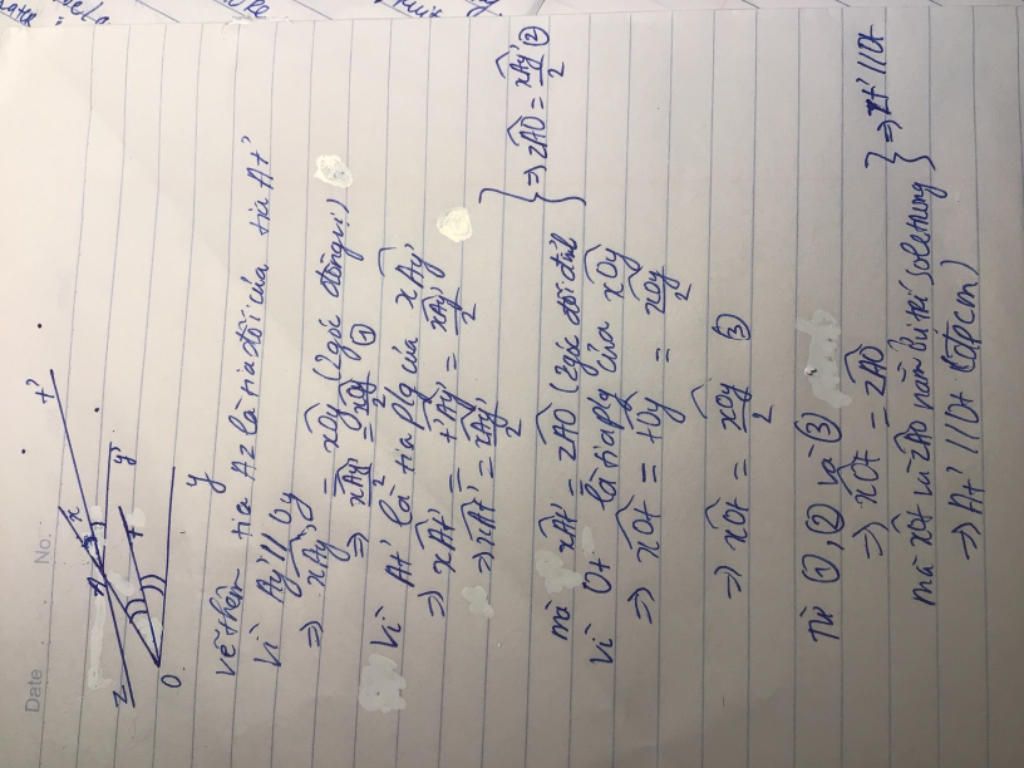 Date
No.
t'
x
A
y'
z
t
O
y
vẽ thêm tia Az là tia đối của tia At'
Vì Ay' // Oy
=> xAy' = xOy (2 góc đồng vị)
=> xAy'/2 = xOy/2 ①
Vì At' là tia plg của xAy'
=> xAt' = t'Ay' = xAy'/2
=> xAt' = xAy'/2
mà xAt' = zAO (2 góc đối đỉnh) } => zAO = xAy'/2 ②
Vì Ot là tia plg của xOy
=> xOt = tOy = xOy/2
=> xOt = xOy/2 ③
Từ ①, ② và ③
=> xOt = zAO
mà xOt và zAO nằm ở vị trí sole trung } => zt' // Ot
=> At' // Ot (đpcm)